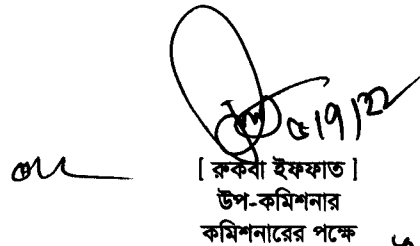 ৫/৭/২২
[ রুকবা ইফফাত ]
উপ-কমিশনার
কমিশনারের পক্ষে